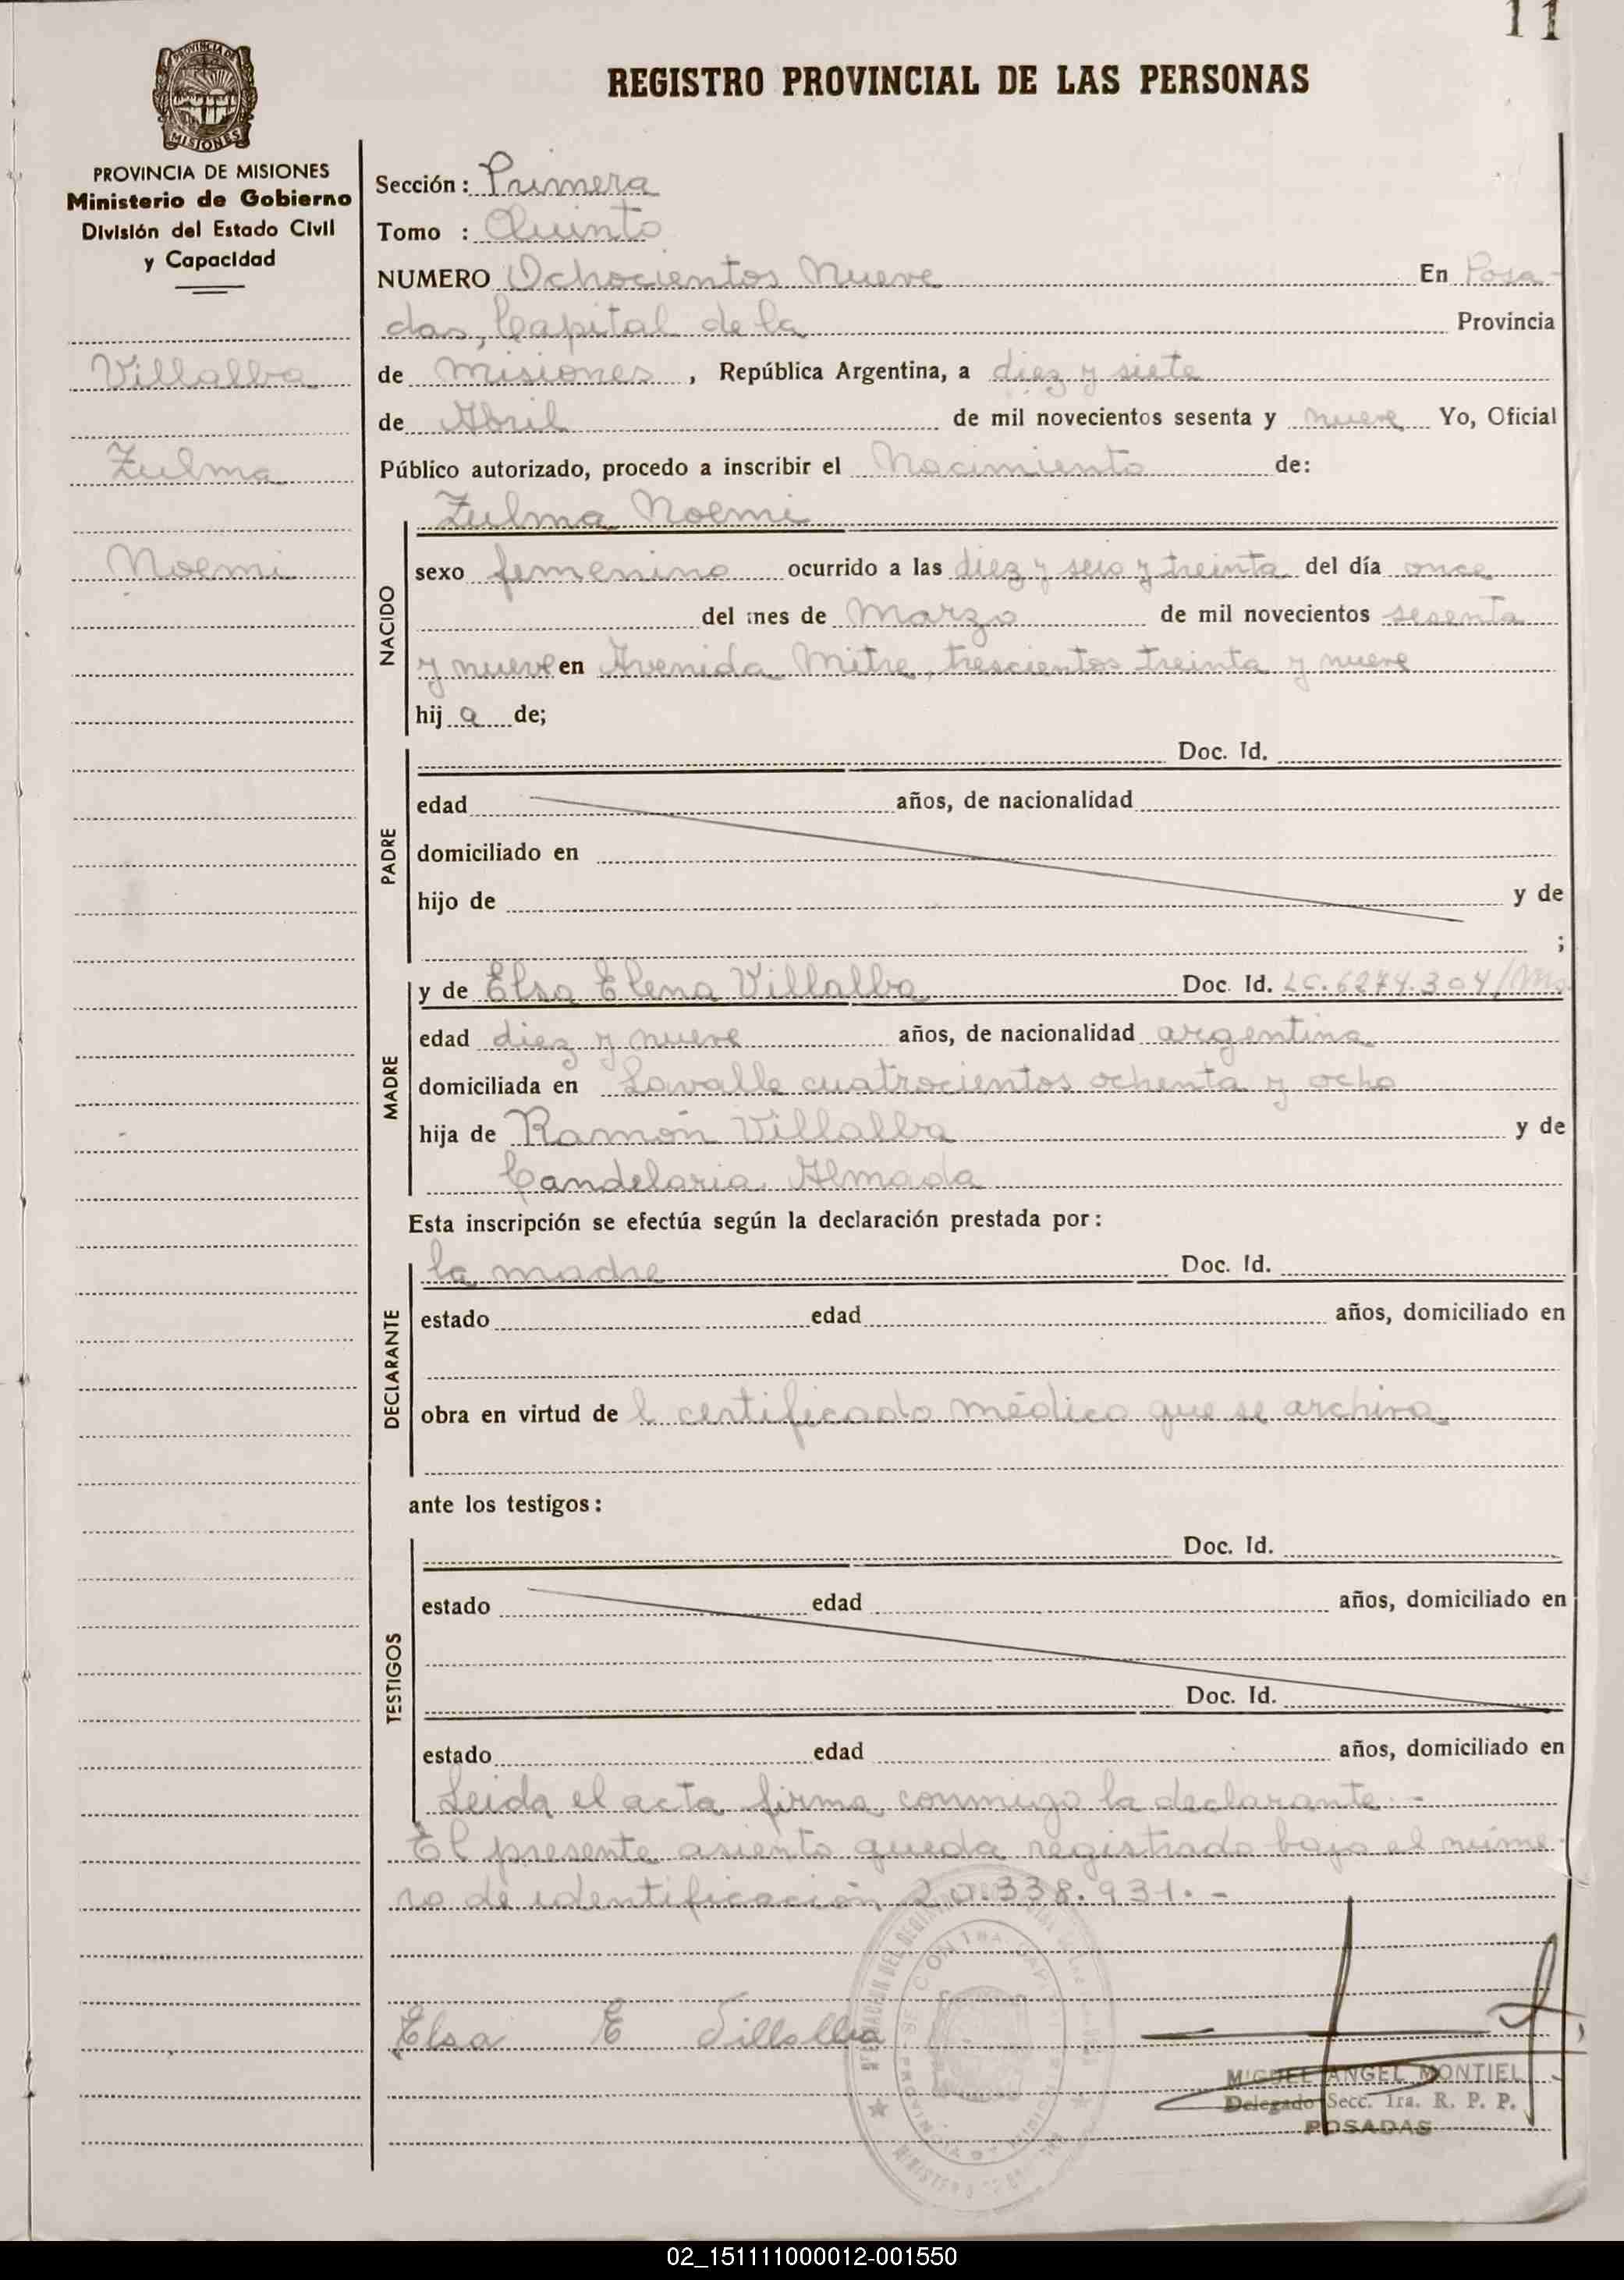 11
REGISTRO PROVINCIAL DE LAS PERSONAS
PROVINCIA DE MISIONES
Ministerio de Gobierno
División del Estado Civil
y Capacidad
Villalba
Zulma
Noemi
Sección: Primera
Tomo : Quinto
NUMERO Ochocientos Nueve En Posa-
das, Capital de la Provincia
de Misiones, República Argentina, a diez y siete
de Abril de mil novecientos sesenta y nueve Yo, Oficial
Público autorizado, procedo a inscribir el Nacimiento de:
NACIDO
Zulma Noemi
sexo femenino ocurrido a las diez y seis y treinta del día once
del mes de Marzo de mil novecientos sesenta
y nueve en Avenida Mitre, trescientos treinta y nueve
hij a de;
PADRE
Doc. Id.
edad años, de nacionalidad
domiciliado en
hijo de y de
;
MADRE
y de Elsa Elena Villalba Doc. Id. LC.6274.304/Ms.
edad diez y nueve años, de nacionalidad argentina
domiciliada en Lavalle cuatrocientos ochenta y ocho
hija de Ramón Villalba y de
Candelaria Almada
Esta inscripción se efectúa según la declaración prestada por:
DECLARANTE
la madre Doc. Id.
estado edad años, domiciliado en
obra en virtud de l certificado médico que se archiva
ante los testigos:
TESTIGOS
Doc. Id.
estado edad años, domiciliado en
Doc. Id.
estado edad años, domiciliado en
Leida el acta, firma conmigo la declarante.-
El presente asiento queda registrado bajo el núme-
ro de identificación, 20.338.931.-
Elsa E Villalba
MIGUEL ANGEL MONTIEL
Delegado Secc. 1ra. R. P. P.
POSADAS
02_151111000012-001550